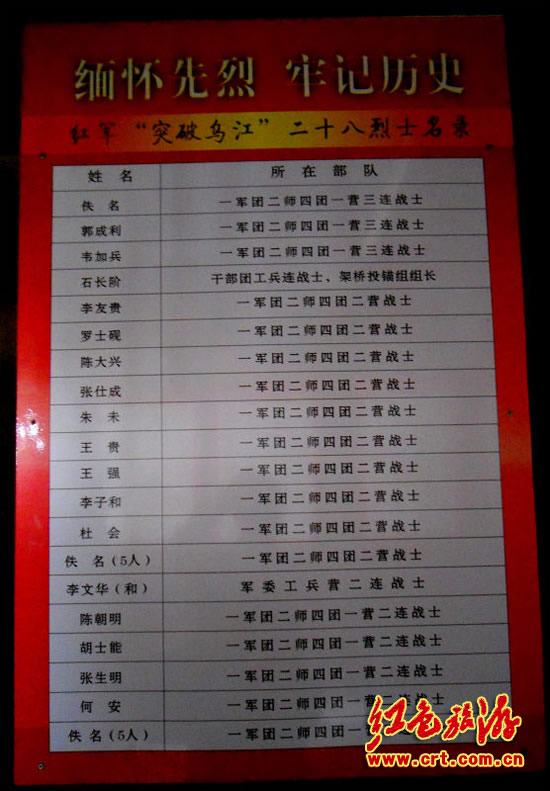 缅怀先烈 牢记历史
红军“突破乌江”二十八烈士名录
姓 名 所在部队
佚 名 一军团二师四团一营三连战士
郭成利 一军团二师四团一营三连战士
韦加兵 一军团二师四团一营三连战士
石长阶 干部团工兵连战士、架桥投锚组组长
李友贵 一军团二师四团二营战士
罗士砚 一军团二师四团二营战士
陈大兴 一军团二师四团二营战士
张仕成 一军团二师四团二营战士
朱 未 一军团二师四团二营战士
王 贵 一军团二师四团二营战士
王 强 一军团二师四团二营战士
李子和 一军团二师四团二营战士
杜 会 一军团二师四团二营战士
佚 名（5人） 一军团二师四团二营战士
李文华（和） 军委工兵营二连战士
陈朝明 一军团二师四团一营二连战士
胡士能 一军团二师四团一营二连战士
张生明 一军团二师四团一营二连战士
何 安 一军团二师四团一营二连战士
佚 名（5人） 一军团二师四团一营二连战士
红色旅游
www.crt.com.cn